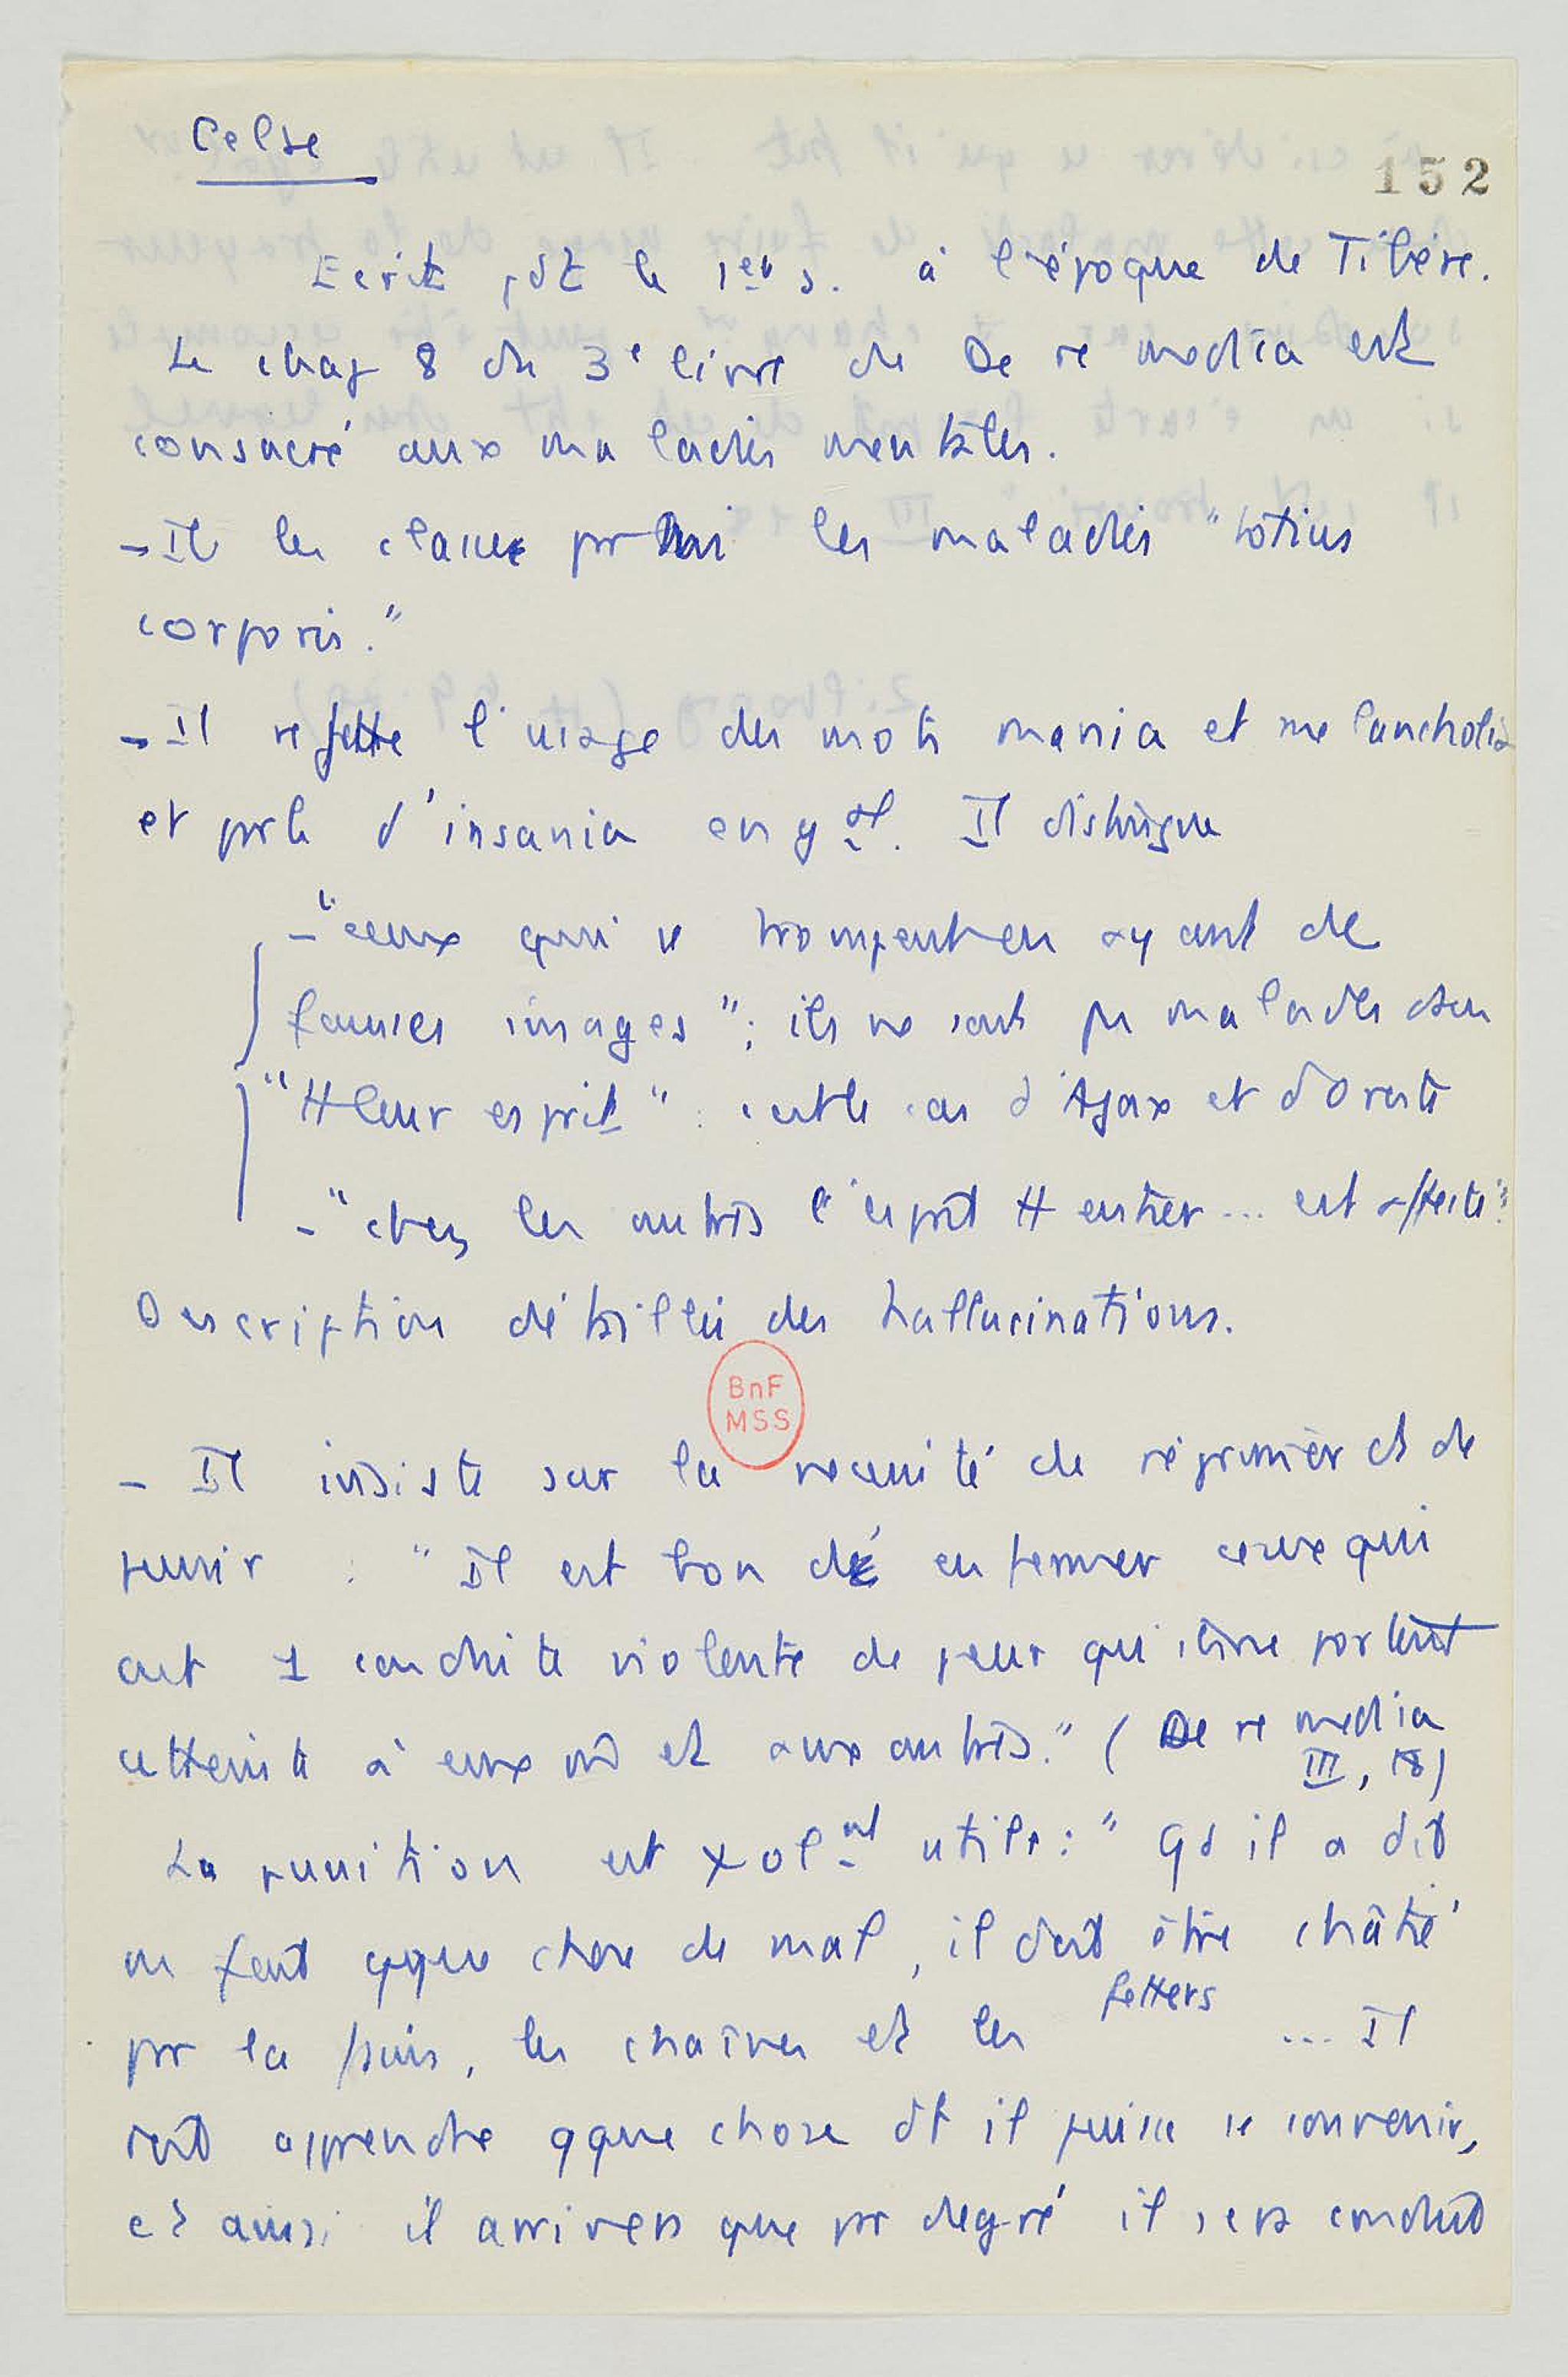 Celse
152
Ecrit pdt le 1er s. à l'époque de Tibère.
Le chap 8 du 3e livre du De re medica est
consacré aux maladies mentales.
- Il les classe parmi les maladies "totius
corporis."
- Il rejette l'usage des mots mania et melancholia
et parle d'insania en gal. Il distingue
- "ceux qui se trompent en ayant de
fausses images"; ils ne sont pas malades dans
"tt leur esprit" : c'est le cas d'Ajax et d'Oreste
- "chez les autres l'esprit tt entier... est affecté".
Description détaillée des hallucinations.
BnF
MSS
- Il insiste sur la nécessité de réprimer et de
punir : "Il est bon de enfermer ceux qui
ont 1 conduite violente de peur qu'ils ne portent
atteinte à eux m̂ et aux autres." (De re media
III, 18)
La punition est égalnt utile : "Qd il a dit
ou fait qque chose de mal, il doit être châtié
par la faim, les chaînes et les fetters ... Il
doit apprendre qque chose dt il puisse se souvenir,
et ainsi il arrivera que par degré il sera conduit